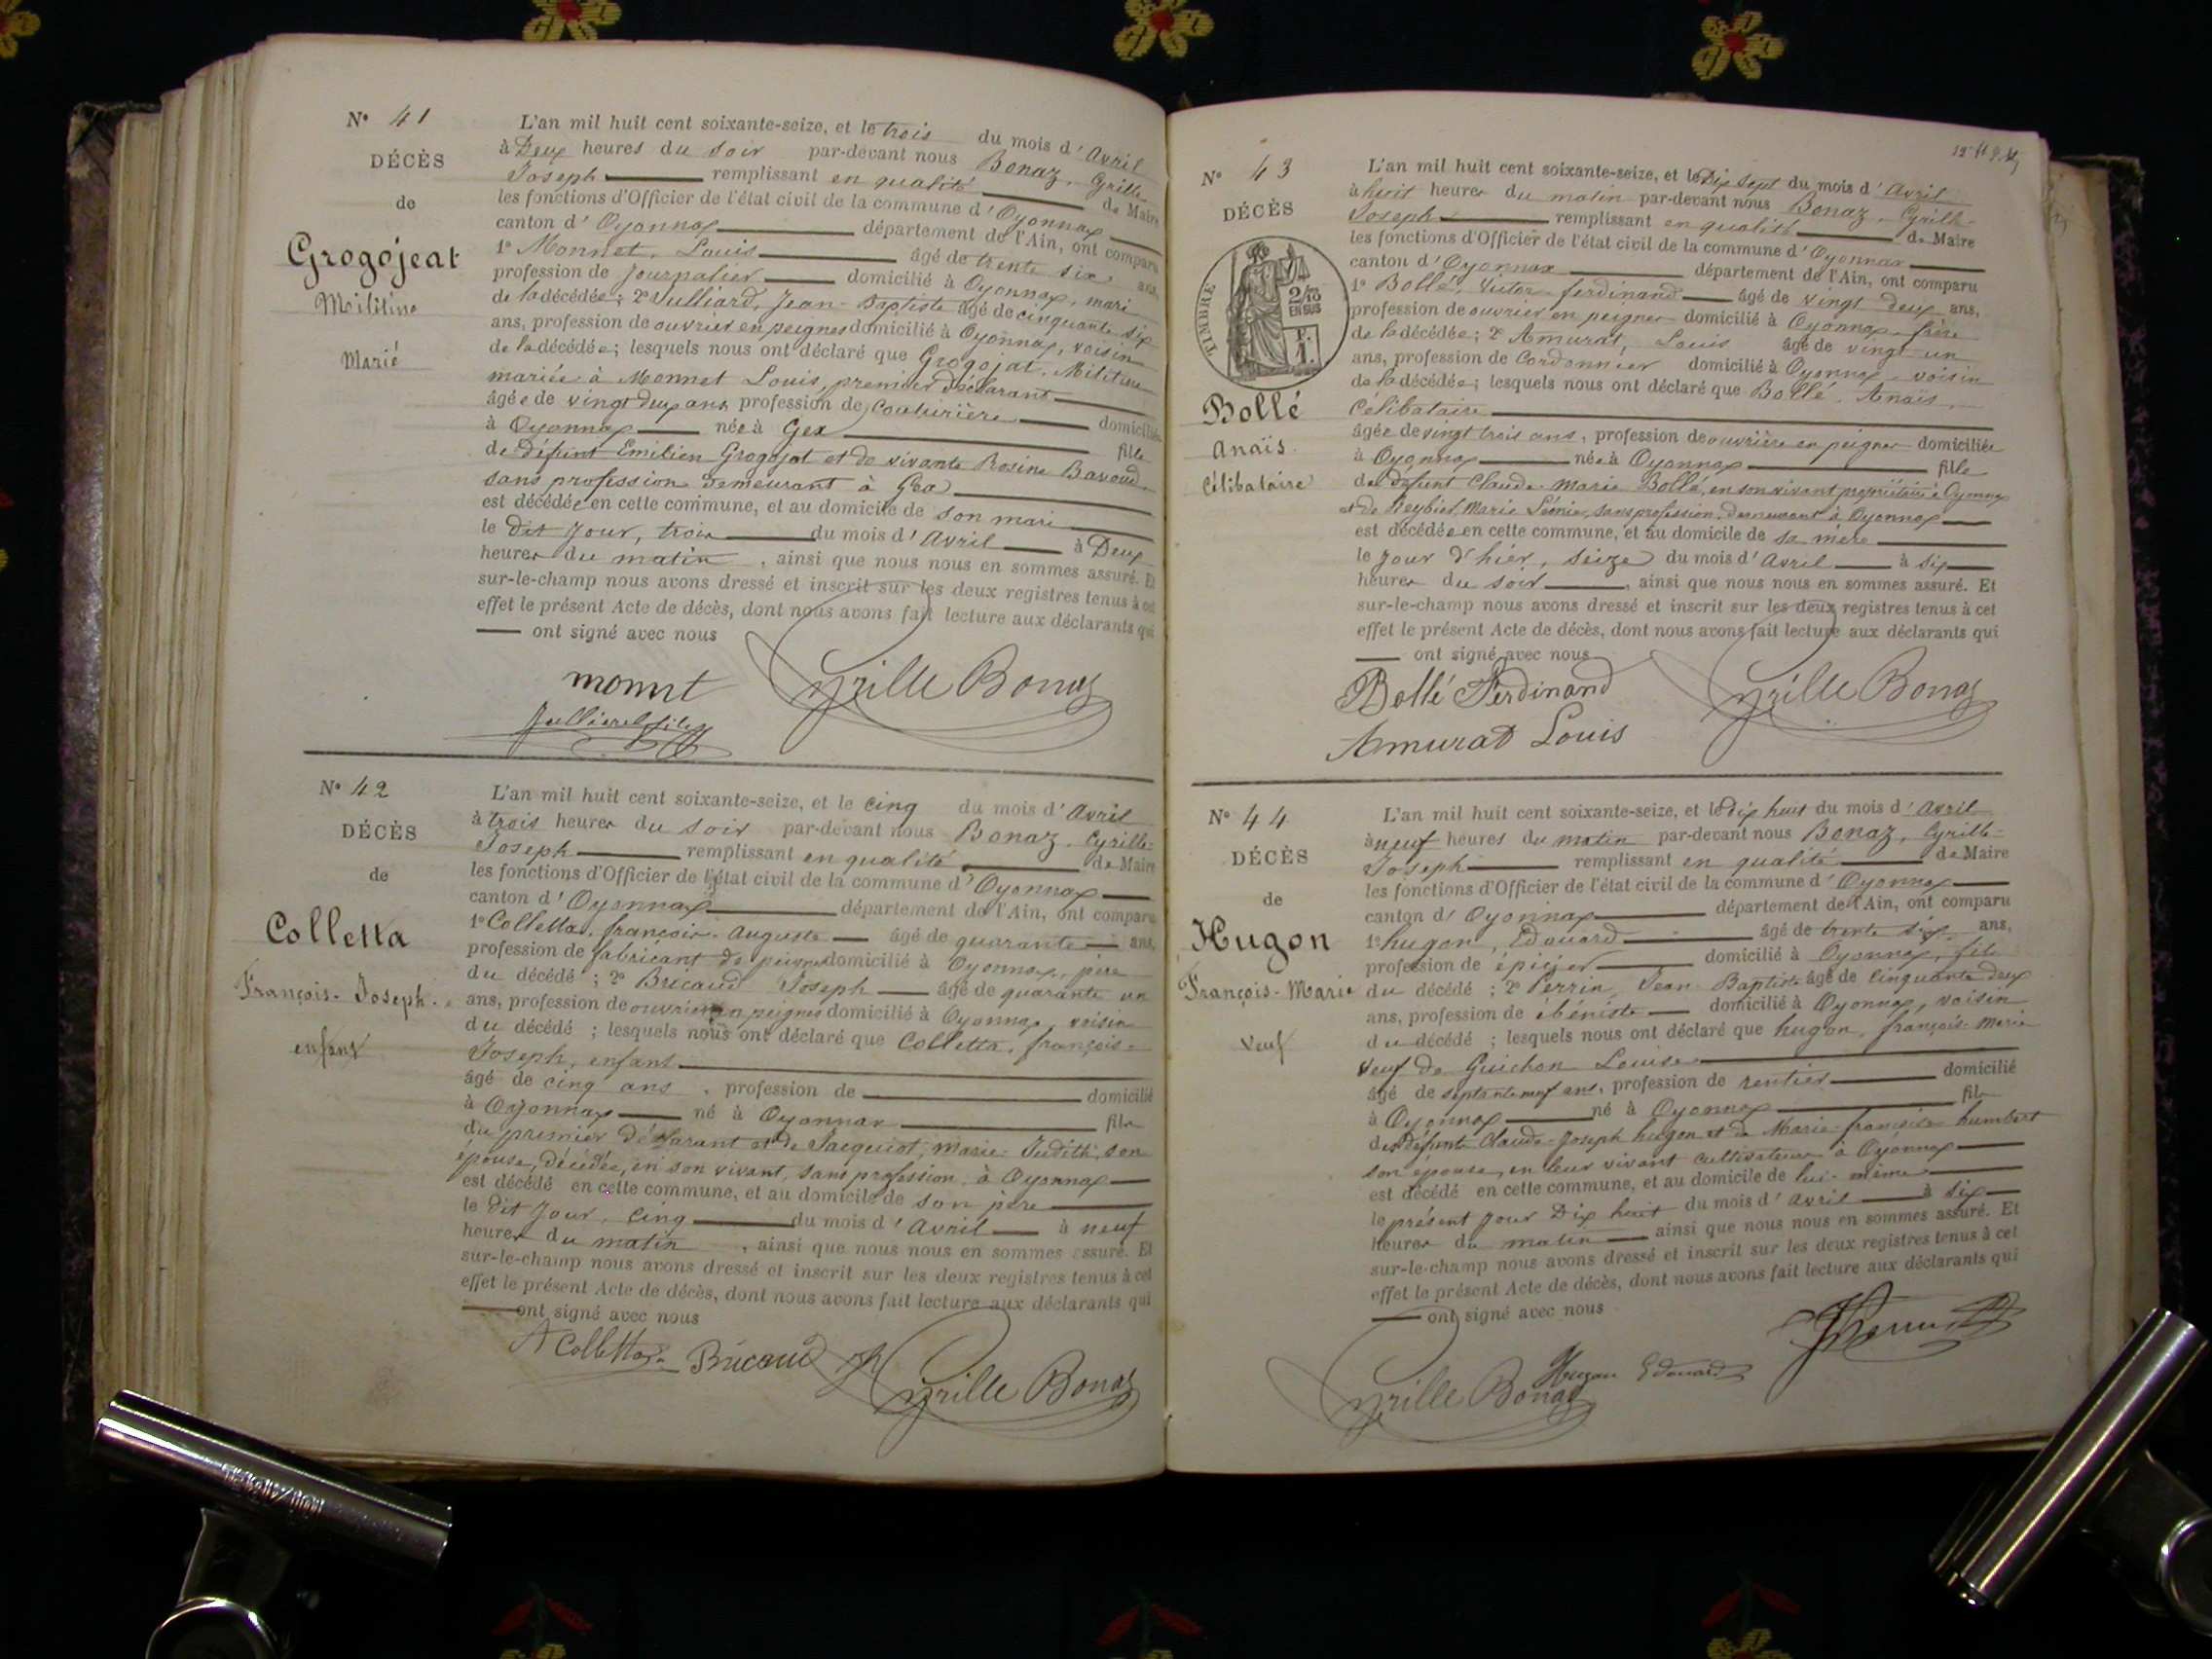 N° 41
DÉCÈS
de
Grogojeat
Militine
Marié
L'an mil huit cent soixante-seize, et le trois du mois d'Avril
à Deux heures du soir par-devant nous Bonaz, Cyrille
Joseph remplissant en qualité de Maire
les fonctions d'Officier de l'état civil de la commune d'Oyonnax
canton d'Oyonnax département de l'Ain, ont comparu
1° Monnet, Louis âgé de trente six ans,
profession de journalier domicilié à Oyonnax, mari
de la décédée; 2° Vulliard, Jean-Baptiste âgé de cinquante six
ans, profession de ouvrier en peignes domicilié à Oyonnax, voisin
de la décédée; lesquels nous ont déclaré que Grogojat, Militine
mariée à Monnet Louis, premier déclarant
âgée de vingt deux ans profession de Couturière domiciliée
à Oyonnax née à Gex fille
de Défunt Emilien Grogojat et de vivante Rosine Bavoud
sans profession demeurant à Gex
est décédée en cette commune, et au domicile de son mari
le dit jour, trois du mois d'Avril à Deux
heures du matin, ainsi que nous nous en sommes assuré. Et
sur-le-champ nous avons dressé et inscrit sur les deux registres tenus à cet
effet le présent Acte de décès, dont nous avons fait lecture aux déclarants qui
ont signé avec nous
monnet Cyrille Bonaz
N° 42
DÉCÈS
de
Colletta
François-Joseph
enfant
L'an mil huit cent soixante-seize, et le cinq du mois d'Avril
à trois heures du soir par-devant nous Bonaz, Cyrille-
Joseph remplissant en qualité de Maire
les fonctions d'Officier de l'état civil de la commune d'Oyonnax
canton d'Oyonnax département de l'Ain, ont comparu
1° Colletta, françois-Auguste âgé de quarante ans,
profession de fabricant de peignes domicilié à Oyonnax, père
du décédé; 2° Bricaud Joseph âgé de quarante un
ans, profession de ouvrier en peignes domicilié à Oyonnax, voisin
du décédé; lesquels nous ont déclaré que Colletta, françois-
Joseph, enfant
âgé de cinq ans, profession de domicilié
à Oyonnax né à Oyonnax fils
du premier déclarant et de Jacquiot, Marie-Judith, son
épouse, décédée, en son vivant, sans profession, à Oyonnax
est décédé en cette commune, et au domicile de son père
le dit jour, cinq du mois d'Avril à neuf
heures du matin, ainsi que nous nous en sommes assuré. Et
sur-le-champ nous avons dressé et inscrit sur les deux registres tenus à cet
effet le présent Acte de décès, dont nous avons fait lecture aux déclarants qui
ont signé avec nous
A Colletta Bricaud Cyrille Bonaz
N° 43
DÉCÈS
TIMBRE
2/10
EN SUS
Bollé
Anaïs
Célibataire
L'an mil huit cent soixante-seize, et le Dix sept du mois d'Avril
à huit heures du matin par-devant nous Bonaz, Cyrille-
Joseph remplissant en qualité de Maire
les fonctions d'Officier de l'état civil de la commune d'Oyonnax
canton d'Oyonnax département de l'Ain, ont comparu
1° Bollé, Victor-ferdinand âgé de vingt deux ans,
profession de ouvrier en peignes domicilié à Oyonnax, frère
de la décédée; 2° Amurat, Louis âgé de vingt un
ans, profession de Cordonnier domicilié à Oyonnax, voisin
de la décédée; lesquels nous ont déclaré que Bollé, Anaïs,
Célibataire
âgée de vingt trois ans, profession de ouvrière en peignes domiciliée
à Oyonnax née à Oyonnax fille
de défunt Claude-Marie Bollé, en son vivant propriétaire à Oyonnax
et de Reybier Marie Léonie, sans profession, demeurant à Oyonnax
est décédée en cette commune, et au domicile de sa mère
le jour d'hier, seize du mois d'Avril à six
heures du soir, ainsi que nous nous en sommes assuré. Et
sur-le-champ nous avons dressé et inscrit sur les deux registres tenus à cet
effet le présent Acte de décès, dont nous avons fait lecture aux déclarants qui
ont signé avec nous
Bollé Ferdinand Cyrille Bonaz
Amurat Louis
N° 44
DÉCÈS
de
Hugon
François-Marie
Veuf
L'an mil huit cent soixante-seize, et le dix huit du mois d'Avril
à neuf heures du matin par-devant nous Bonaz, Cyrille-
Joseph remplissant en qualité de Maire
les fonctions d'Officier de l'état civil de la commune d'Oyonnax
canton d'Oyonnax département de l'Ain, ont comparu
1° hugon, Edouard âgé de trente six ans,
profession de épicier domicilié à Oyonnax, fils
du décédé; 2° Perrin, Jean-Baptiste âgé de cinquante deux
ans, profession de ébéniste domicilié à Oyonnax, voisin
du décédé; lesquels nous ont déclaré que hugon, françois-Marie
veuf de Guichon Louise
âgé de septante neuf ans, profession de rentier domicilié
à Oyonnax né à Oyonnax fils
des défunts Claude-Joseph hugon et de Marie-françoise humbert
son épouse, en leur vivant cultivateurs à Oyonnax
est décédé en cette commune, et au domicile de lui-même
le présent jour Dix huit du mois d'Avril à six
heures du matin ainsi que nous nous en sommes assuré. Et
sur-le-champ nous avons dressé et inscrit sur les deux registres tenus à cet
effet le présent Acte de décès, dont nous avons fait lecture aux déclarants qui
ont signé avec nous
Cyrille Bonaz Hugon Edouard